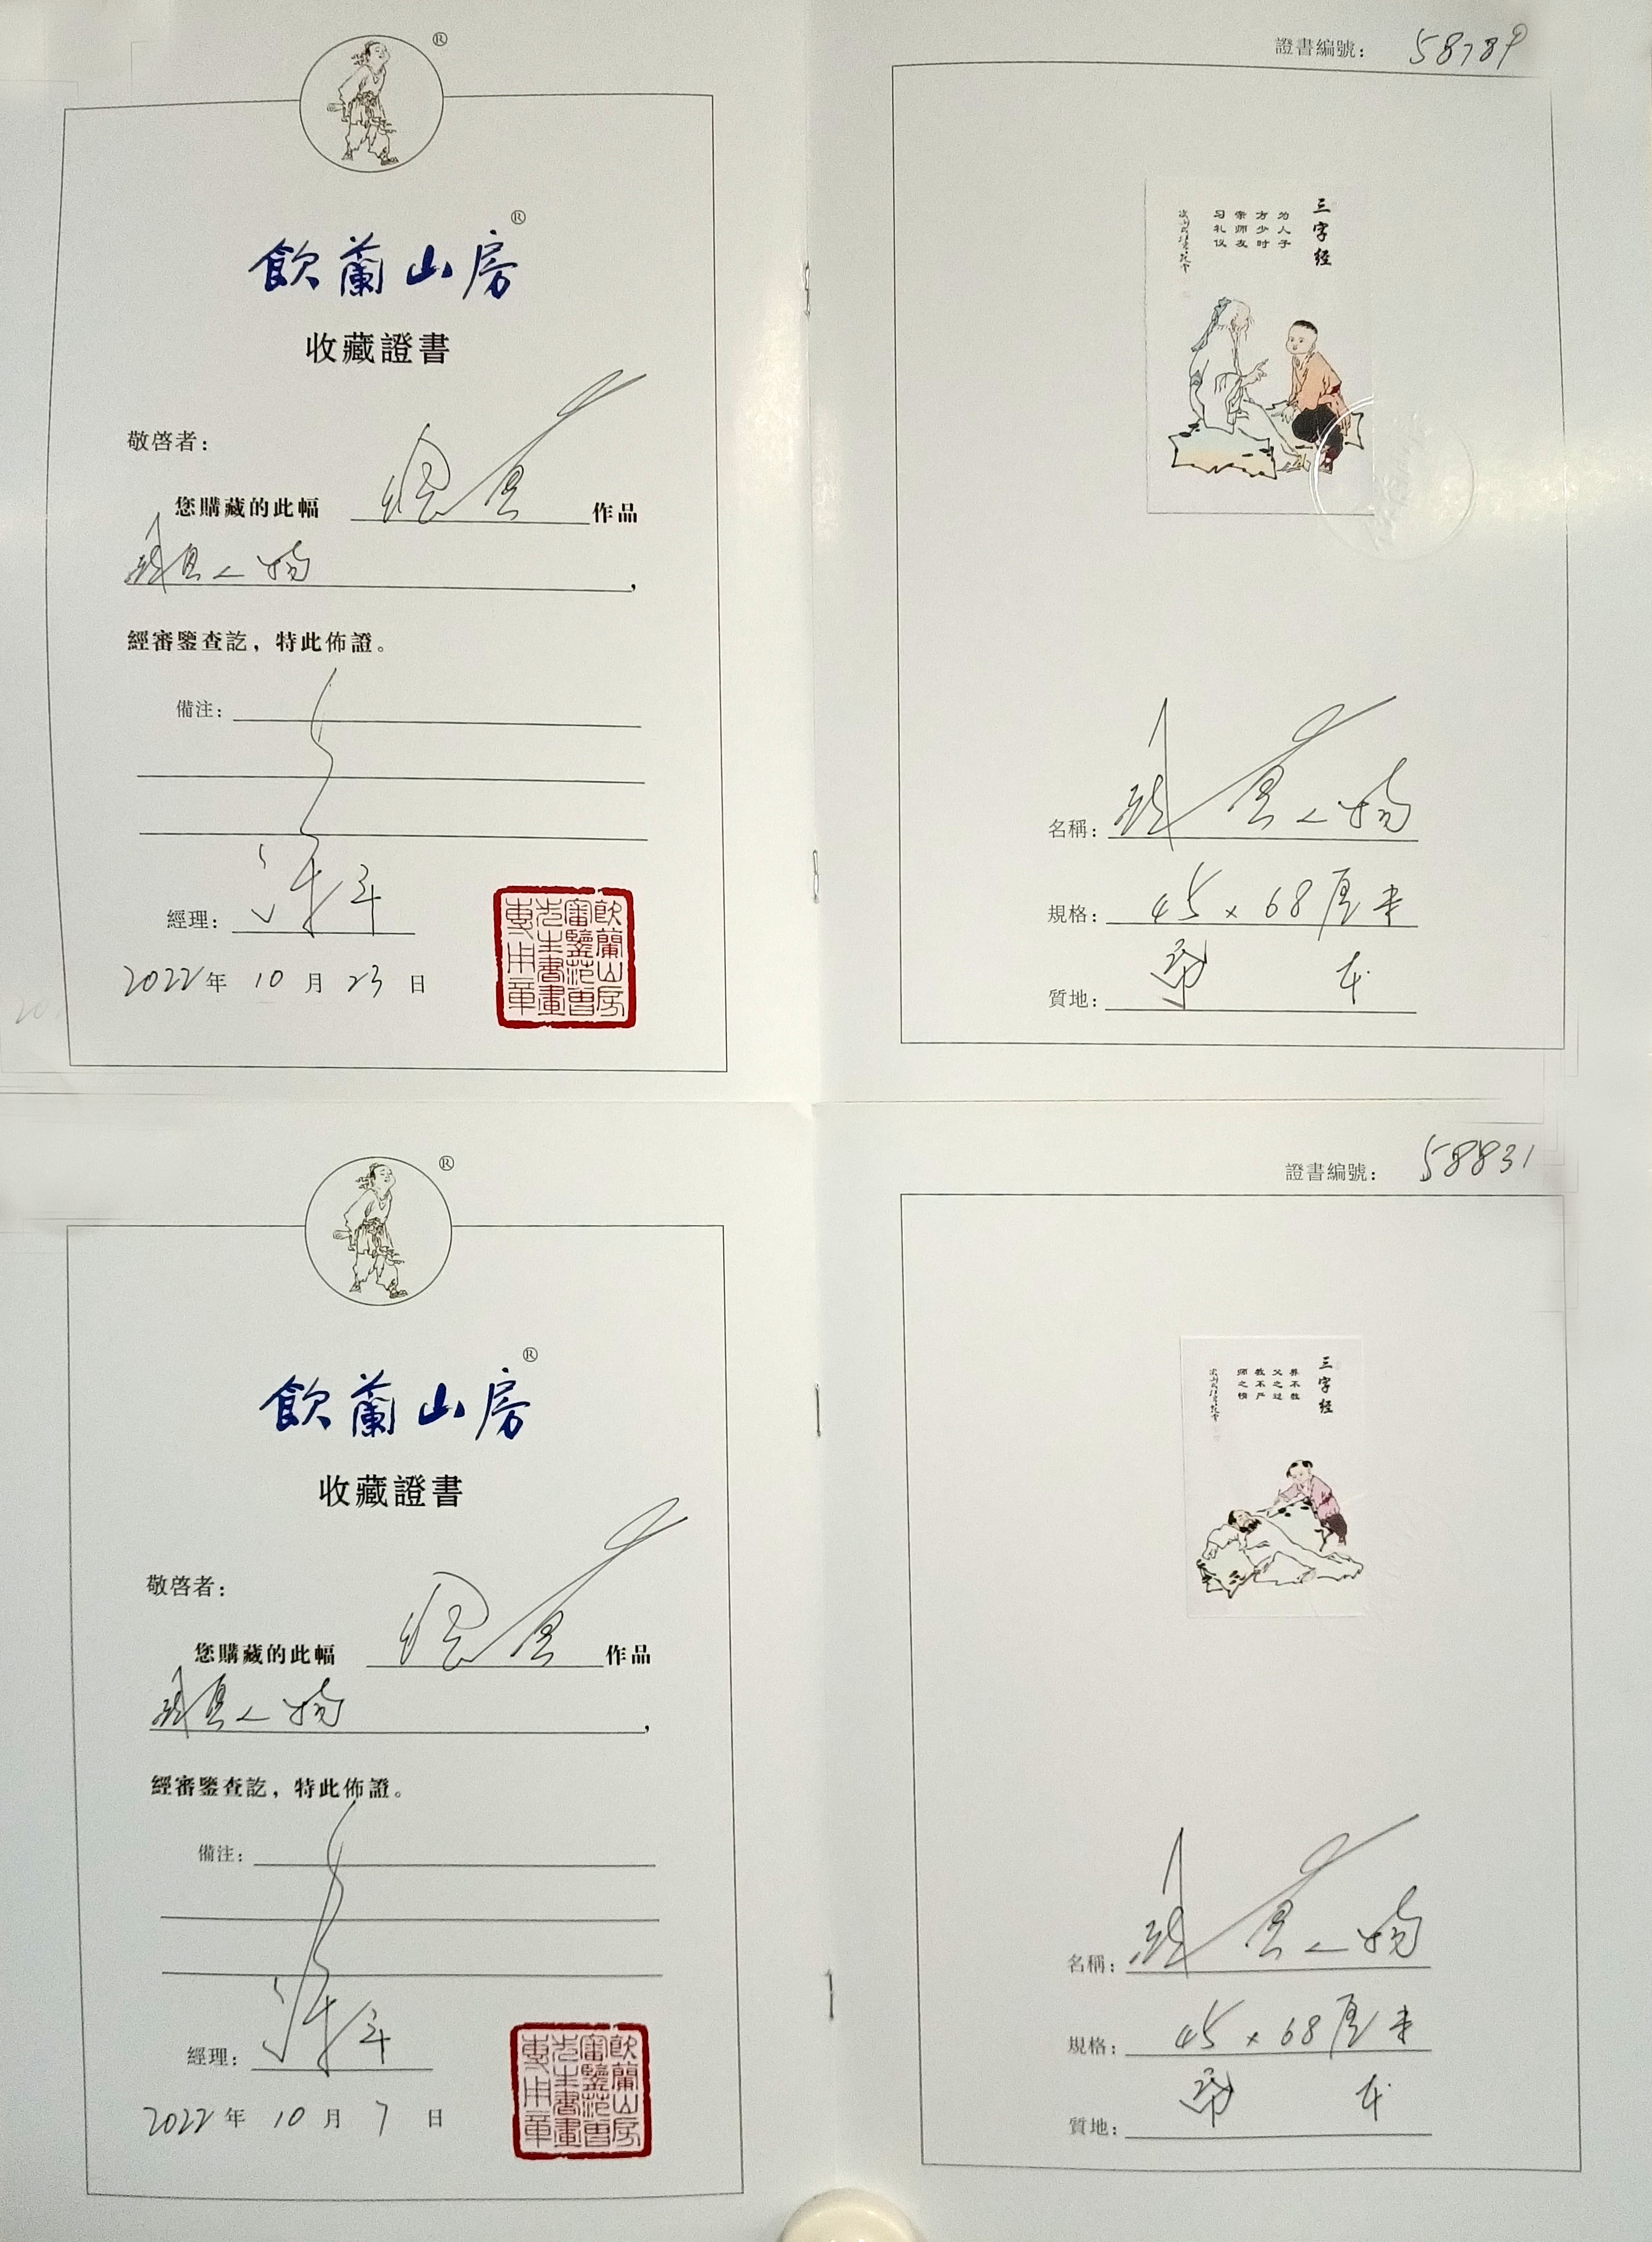 ®
®
飲蘭山房
收藏證書
敬啓者：
您購藏的此幅 作品
人物，
經審鑒查訖，特此佈證。
備注：
經理：
2022年 10 月 23 日
飲蘭山房
審鑒范曾
先生書畫
專用章
證書編號： 58789
三字经
为人子
方少时
亲师友
习礼仪
名稱： 人物
規格： 45 x 68厘米
質地：
®
®
飲蘭山房
收藏證書
敬啓者：
您購藏的此幅 作品
人物，
經審鑒查訖，特此佈證。
備注：
經理：
2022年 10 月 7 日
飲蘭山房
審鑒范曾
先生書畫
專用章
證書編號： 58831
三字经
养不教
父之过
教不严
师之惰
名稱： 人物
規格： 45 x 68厘米
質地：